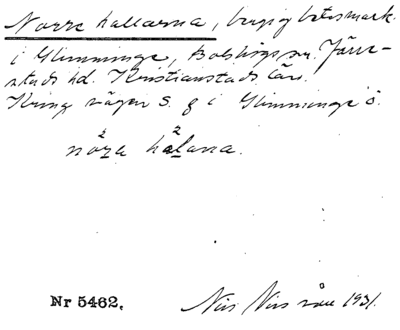 Norre hallarna, bergig betesmark
i Glimminge, Bolshögs sn. Järre-
stads hd. Kristianstads län.
Kring vägen S. g i Glimminge ö.
2 2
nöra halarna.
Nr 5462.
Nils Nilsson 1931.